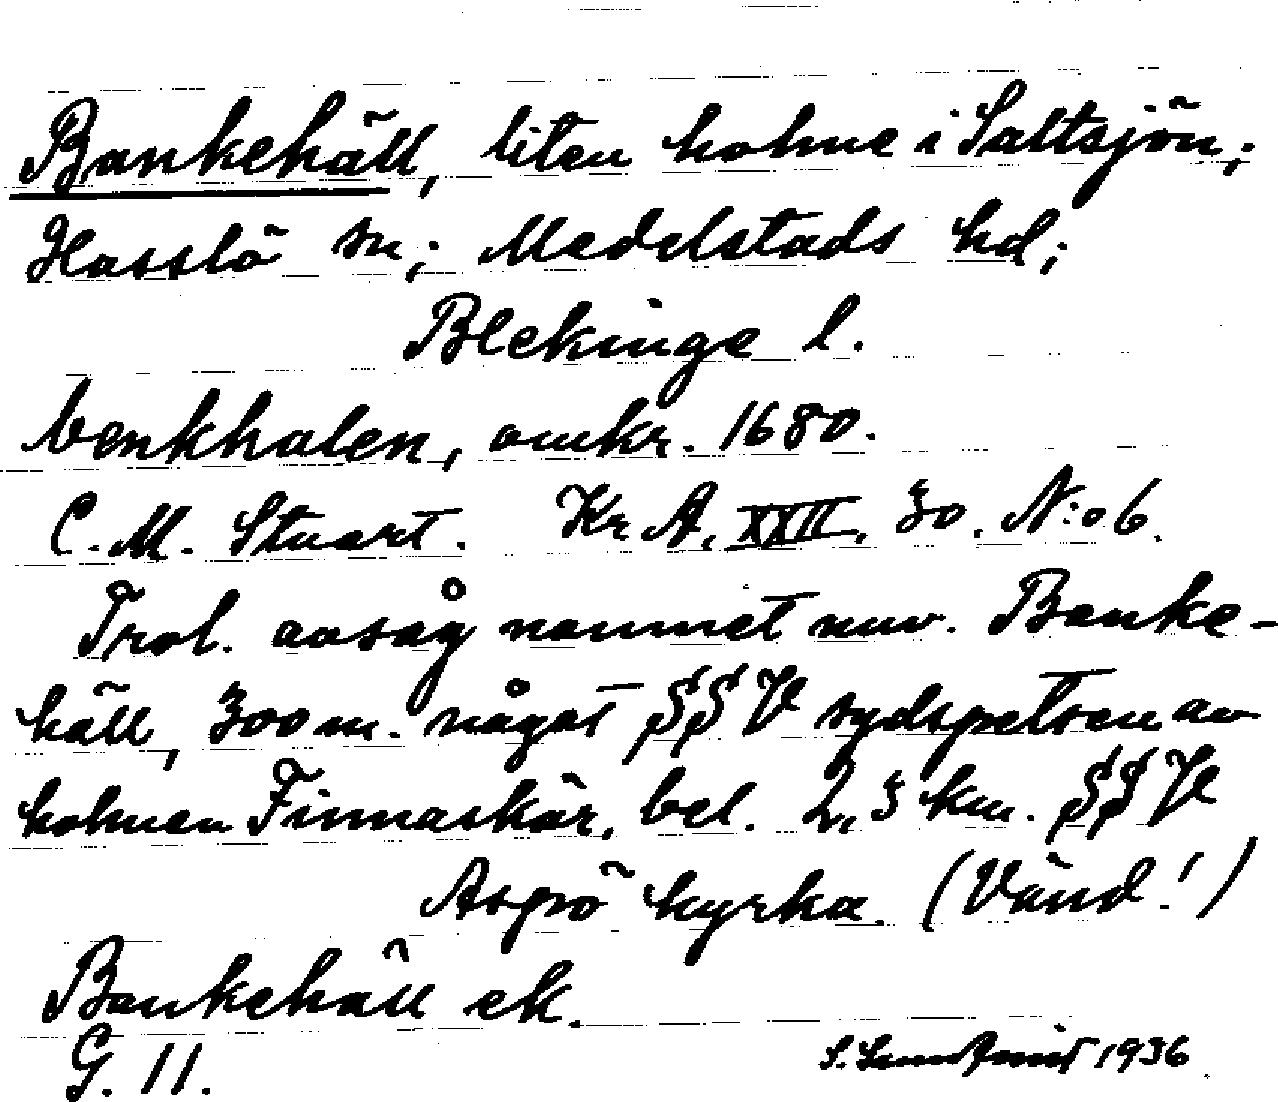 Bankehäll, liten holme i Saltsjön;
Hasslö sn; Medelstads hd;
Blekinge l.
benkhalen, omkr. 1680.
C. M. Stuart. Kr A, XXII, 30. N:o 6.
Trol. avsåg namnet nuv. Banke-
häll, 300 m. något SSV sydspetsen av
holmen Finnaskär, bel. 2,3 km. SSV
Aspö kyrka. (Vänd!)
Bankehäll ek.
G. 11. 1936